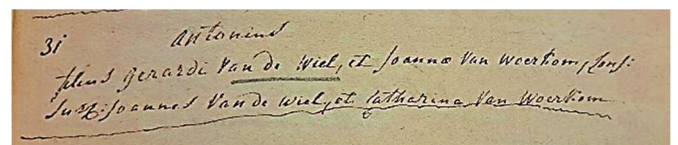 31 Antonius
filius Gerardi Van de Wiel, et Joannæ Van Woerkom, Sens:
Susz: Joannes Van de Wiel, et Catharina Van Woerkom